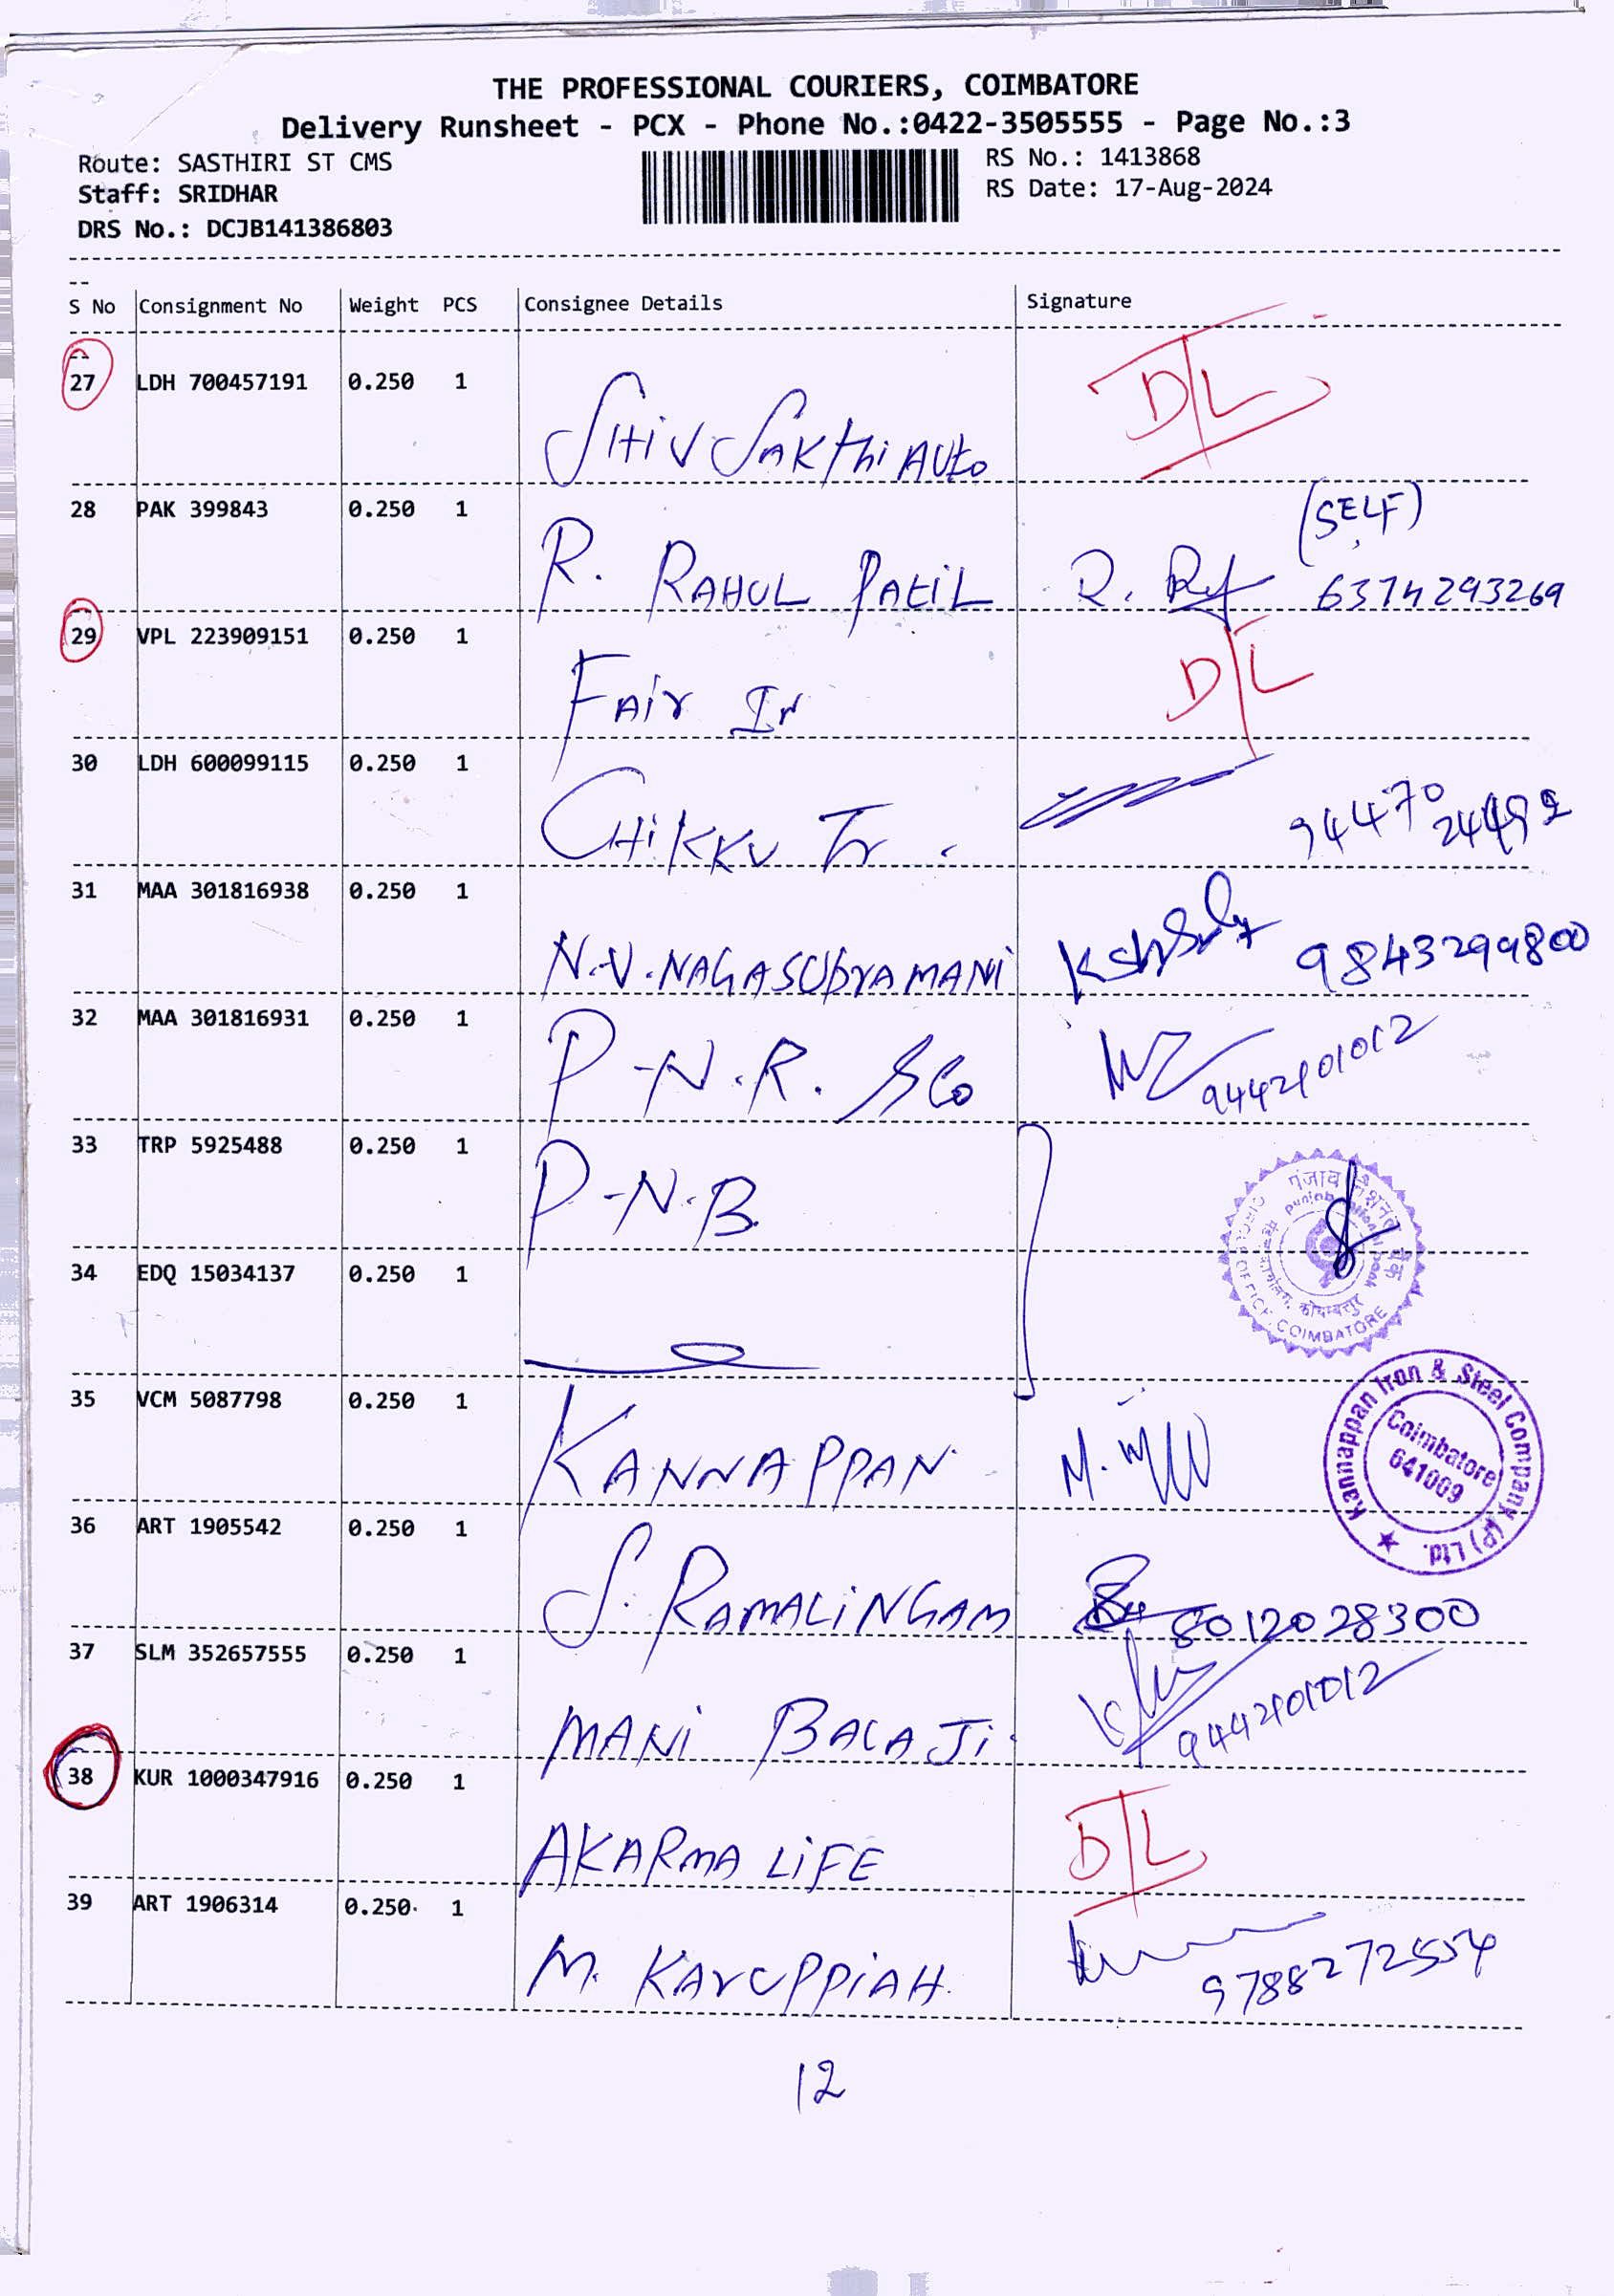 THE PROFESSIONAL COURIERS, COIMBATORE
Delivery Runsheet - PCX - Phone No.:0422-3505555 - Page No.:3
Route: SASTHIRI ST CMS
Staff: SRIDHAR
DRS No.: DCJB141386803
RS No.: 1413868
RS Date: 17-Aug-2024
S No Consignment No Weight PCS Consignee Details Signature
27 LDH 700457191 0.250 1
SHiV SAKthi AUto D/L
28 PAK 399843 0.250 1 (SELF)
R. RAHUL PAtiL R. 6374293269
29 VPL 223909151 0.250 1
FAir In D/L
30 LDH 600099115 0.250 1
CHiKKU Tr. 94470 24492
31 MAA 301816938 0.250 1
N.V.NAGASUbrAMANi 9843299800
32 MAA 301816931 0.250 1
P-N.R. & Co 9442101012
33 TRP 5925488 0.250 1
P-N.B.
पंजाब नैशनल बैंक
Punjab National Bank
कोयम्बत्तूर
OFFICE. COIMBATORE
34 EDQ 15034137 0.250 1
35 VCM 5087798 0.250 1
KANNAPPAN M.
Kannappan Iron & Steel Company (P) Ltd.
Coimbatore
641009
36 ART 1905542 0.250 1
S. RAMALiNGAM 8012028300
37 SLM 352657555 0.250 1
MANi BALAJi. 9442101012
38 KUR 1000347916 0.250 1
AKARMA LiFE D/L
39 ART 1906314 0.250 1
M. KArUPPiAH. 9788272554
12